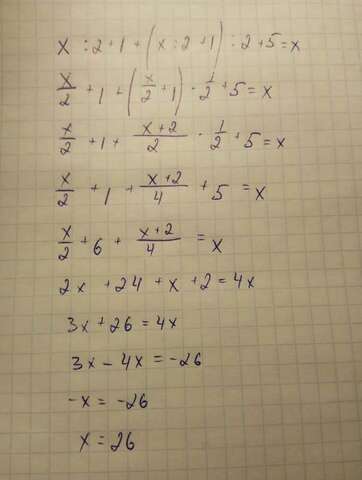 x : 2 + 1 + (x : 2 + 1) : 2 + 5 = x
x/2 + 1 + (x/2 + 1) · 1/2 + 5 = x
x/2 + 1 + (x+2)/2 · 1/2 + 5 = x
x/2 + 1 + (x+2)/4 + 5 = x
x/2 + 6 + (x+2)/4 = x
2x + 24 + x + 2 = 4x
3x + 26 = 4x
3x - 4x = -26
-x = -26
x = 26